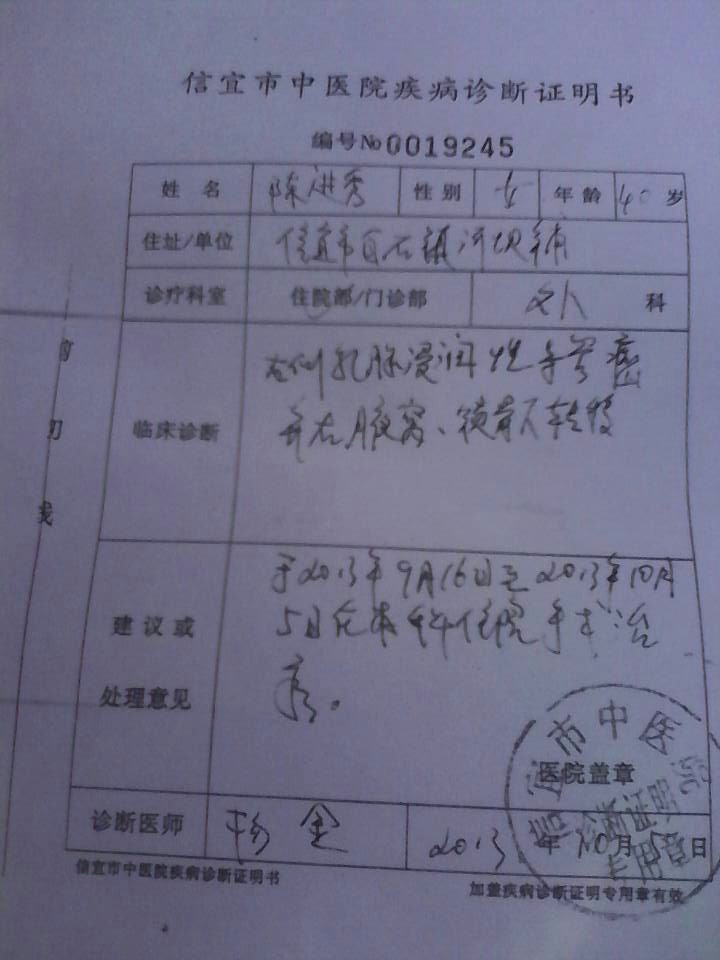 信宜市中医院疾病诊断证明书
编号№0019245
姓名 陈进秀 性别 女 年龄 40 岁
住址/单位 信宜市白石镇河坝铺
诊疗科室 住院部/门诊部 外 科
剪刀线
临床诊断 右侧乳腺浸润性导管癌
并右腋窝、锁骨下转移
于2013年9月16日至2013年10月
建议或 5日在本科住院手术治
处理意见 疗。
信宜市中医院
诊断证明
专用章
医院盖章
诊断医师 杨金 2013年10月5日
信宜市中医院疾病诊断证明书 加盖疾病诊断证明专用章有效